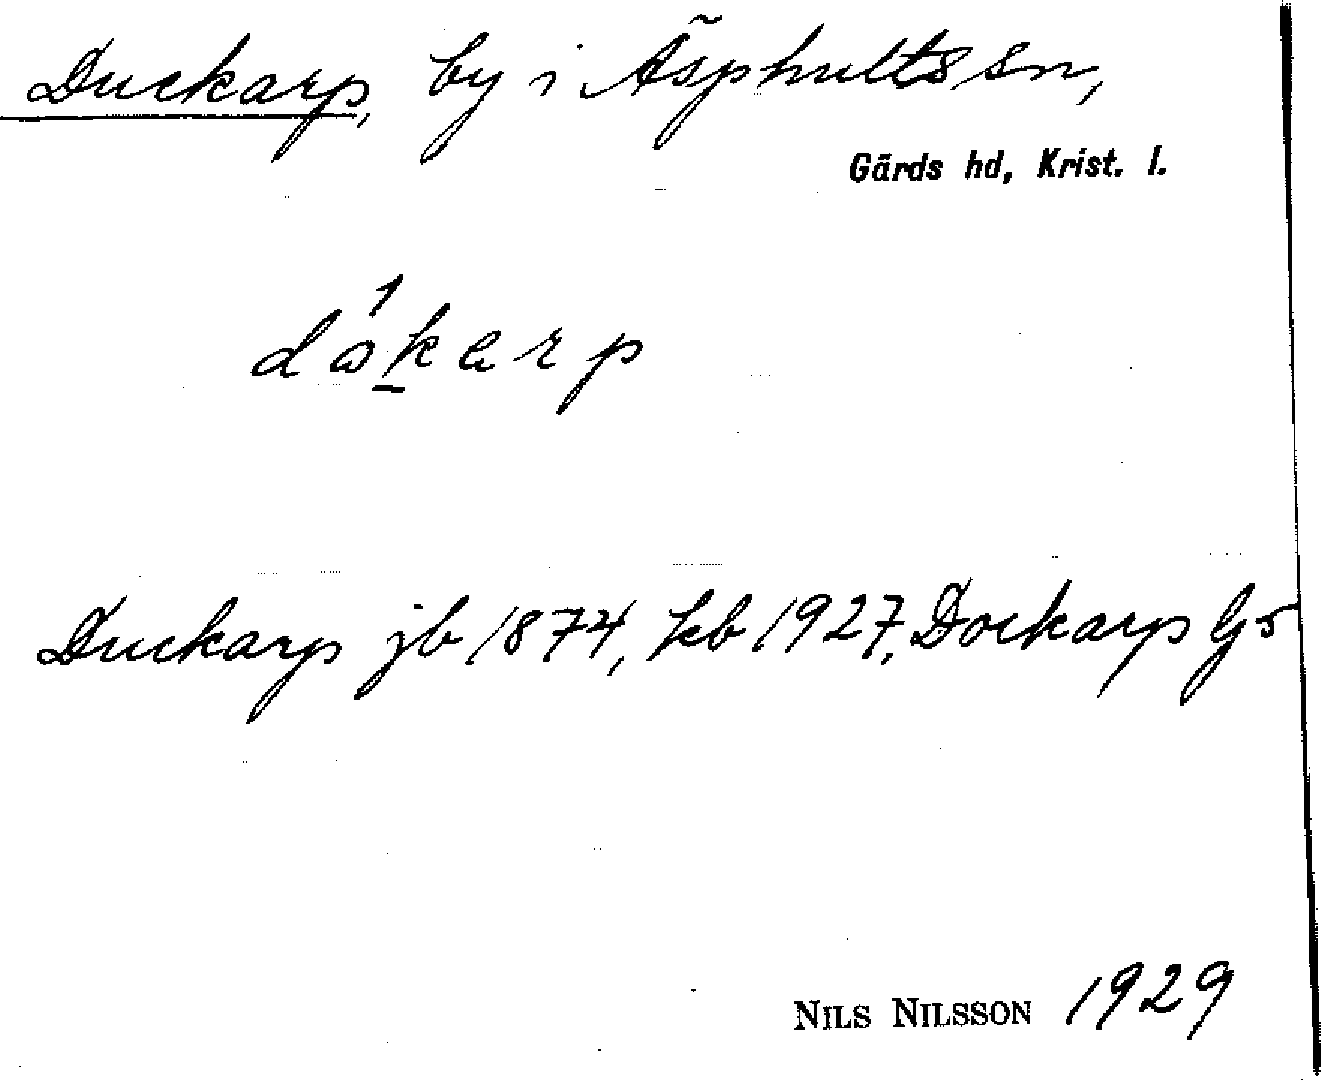 Duckarp, by i Äsphults sn,
Gärds hd, Krist. l.
Duckarp jb 1874, kb 1927, Dockarp G5
NILS NILSSON 1929